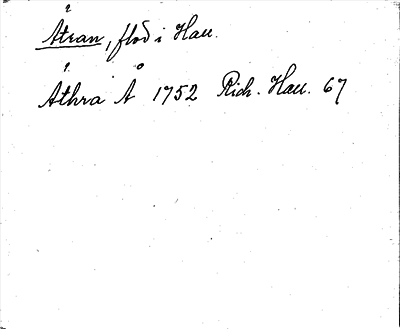 Ätran, flod i Hall.
Åthra Å 1752 Rich. Hall. 67